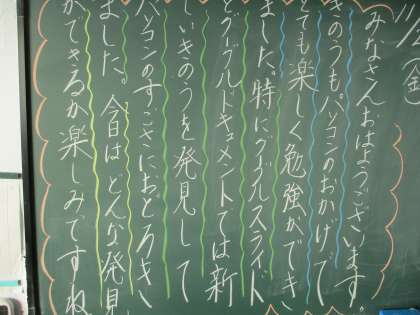 みなさんおはようございます。
きのうも、パソコンのおかげで
とても楽しく勉強ができ
ました。特にグーグルスライド
とグーグルドキュメントでは新
しいきのうを発見して
パソコンのすごさにおどろき
ました。今日はどんな発見
ができるか楽しみですね